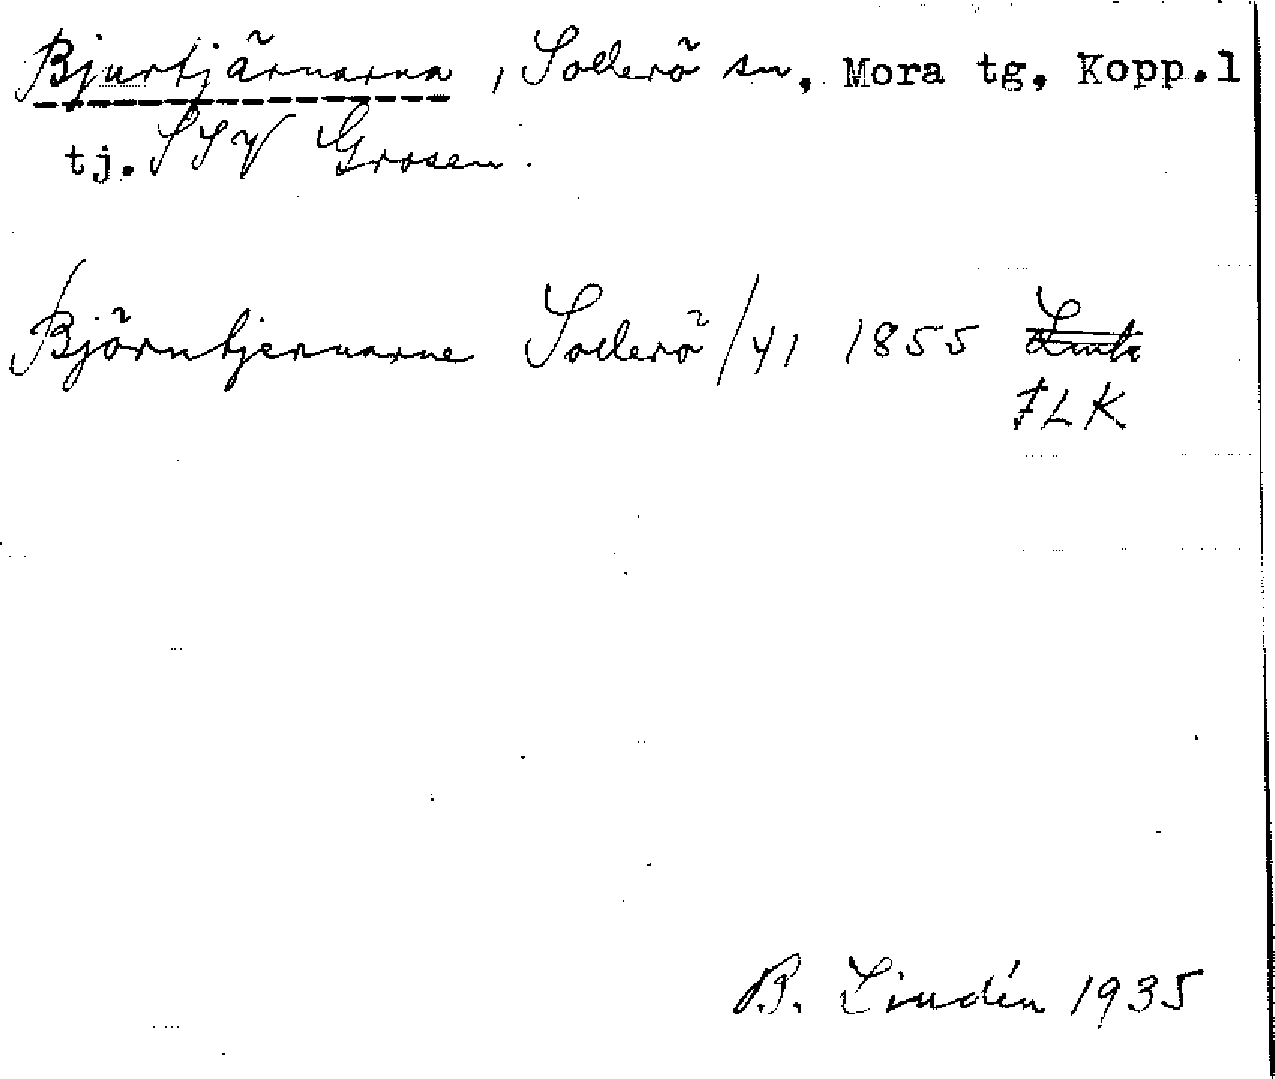 Bjurtjärnarna, Sollerö sn, Mora tg, Kopp.l
tj. SSV Grosen.
Björntjernarne Sollerö/41 1855
FLK
B. Lindén 1935